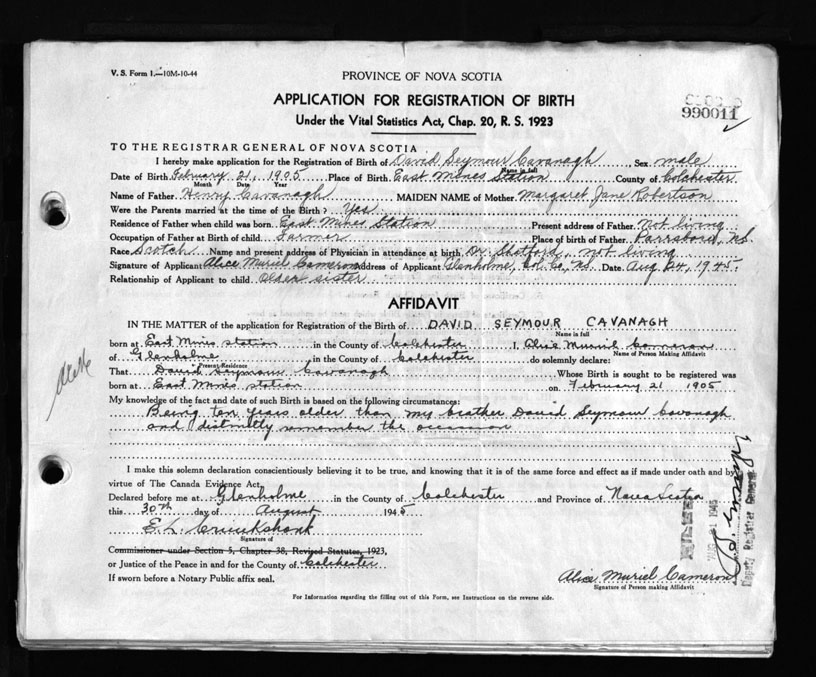 V. S. Form 1.—10M-10-44
PROVINCE OF NOVA SCOTIA
990011
APPLICATION FOR REGISTRATION OF BIRTH
Under the Vital Statistics Act, Chap. 20, R. S. 1923
TO THE REGISTRAR GENERAL OF NOVA SCOTIA
I hereby make application for the Registration of Birth of David Seymour Cavanagh Sex male
Name in full
Date of Birth February 21, 1905 Place of Birth East Mines Station County of Colchester
Month Date Year
Name of Father Henry Cavanagh MAIDEN NAME of Mother Margaret Jane Robertson
Were the Parents married at the time of the Birth? Yes
Residence of Father when child was born East Mines Station Present address of Father Not living
Occupation of Father at Birth of child Farmer Place of birth of Father Parrsboro, N.S.
Race Scotch Name and present address of Physician in attendance at birth Dr. Shatford, not living
Signature of Applicant Alice Muriel Cameron Address of Applicant Glenholme, Col. Co., N.S. Date Aug 24, 1945.
Relationship of Applicant to child older sister
AFFIDAVIT
IN THE MATTER of the application for Registration of the Birth of DAVID SEYMOUR CAVANAGH
Name in full
born at East Mines station in the County of Colchester I, Alice Muriel Cameron
Name of Person Making Affidavit
of Glenholme in the County of Colchester do solemnly declare:
Present Residence
That David Seymour Cavanagh Whose Birth is sought to be registered was
born at East Mines station on February 21 1905
My knowledge of the fact and date of such Birth is based on the following circumstances:
Being ten years older than my brother David Seymour Cavanagh
and distinctly remember the occassion
I make this solemn declaration conscientiously believing it to be true, and knowing that it is of the same force and effect as if made under oath and by
virtue of The Canada Evidence Act.
Declared before me at Glenholme in the County of Colchester and Province of Nova Scotia
this 30th day of August 1945
E. L. Cruikshank
Signature of
Commissioner under Section 5, Chapter 38, Revised Statutes, 1923,
or Justice of the Peace in and for the County of Colchester
If sworn before a Notary Public affix seal.
Alice Muriel Cameron
Signature of Person making Affidavit
For Information regarding the filling out of this Form, see Instructions on the reverse side.
FILED
AUG 31 1945
Deputy Registrar General